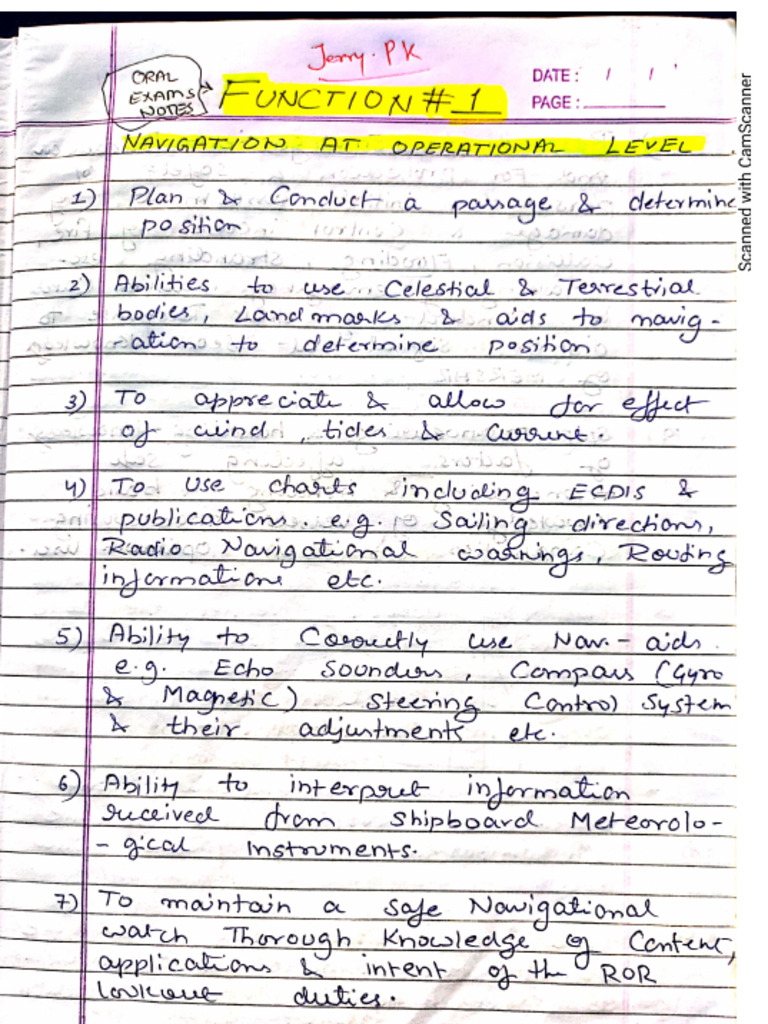 Jerry. PK
ORAL
EXAMS
NOTES
FUNCTION # 1
DATE: / /
PAGE:
NAVIGATION AT OPERATIONAL LEVEL
1) Plan & Conduct a passage & determine
position
2) Abilities to use Celestial & Terrestrial
bodies, Landmarks & aids to navig-
-ation to determine position
3) To appreciate & allow for effect
of wind, tides & Current.
4) To use charts including ECDIS &
publications. e.g. Sailing directions,
Radio Navigational warnings, Routing
informations etc.
5) Ability to Correctly use Nav.-aids.
e.g. Echo Sounders, Compass (Gyro
& Magnetic) Steering Control System
& their adjustments etc.
6) Ability to interpret information
received from Shipboard Meteorolo-
-gical Instruments.
7) To maintain a safe Navigational
watch Thorough Knowledge of Content,
applications & intent of the ROR
lookout duties.
Scanned with CamScanner